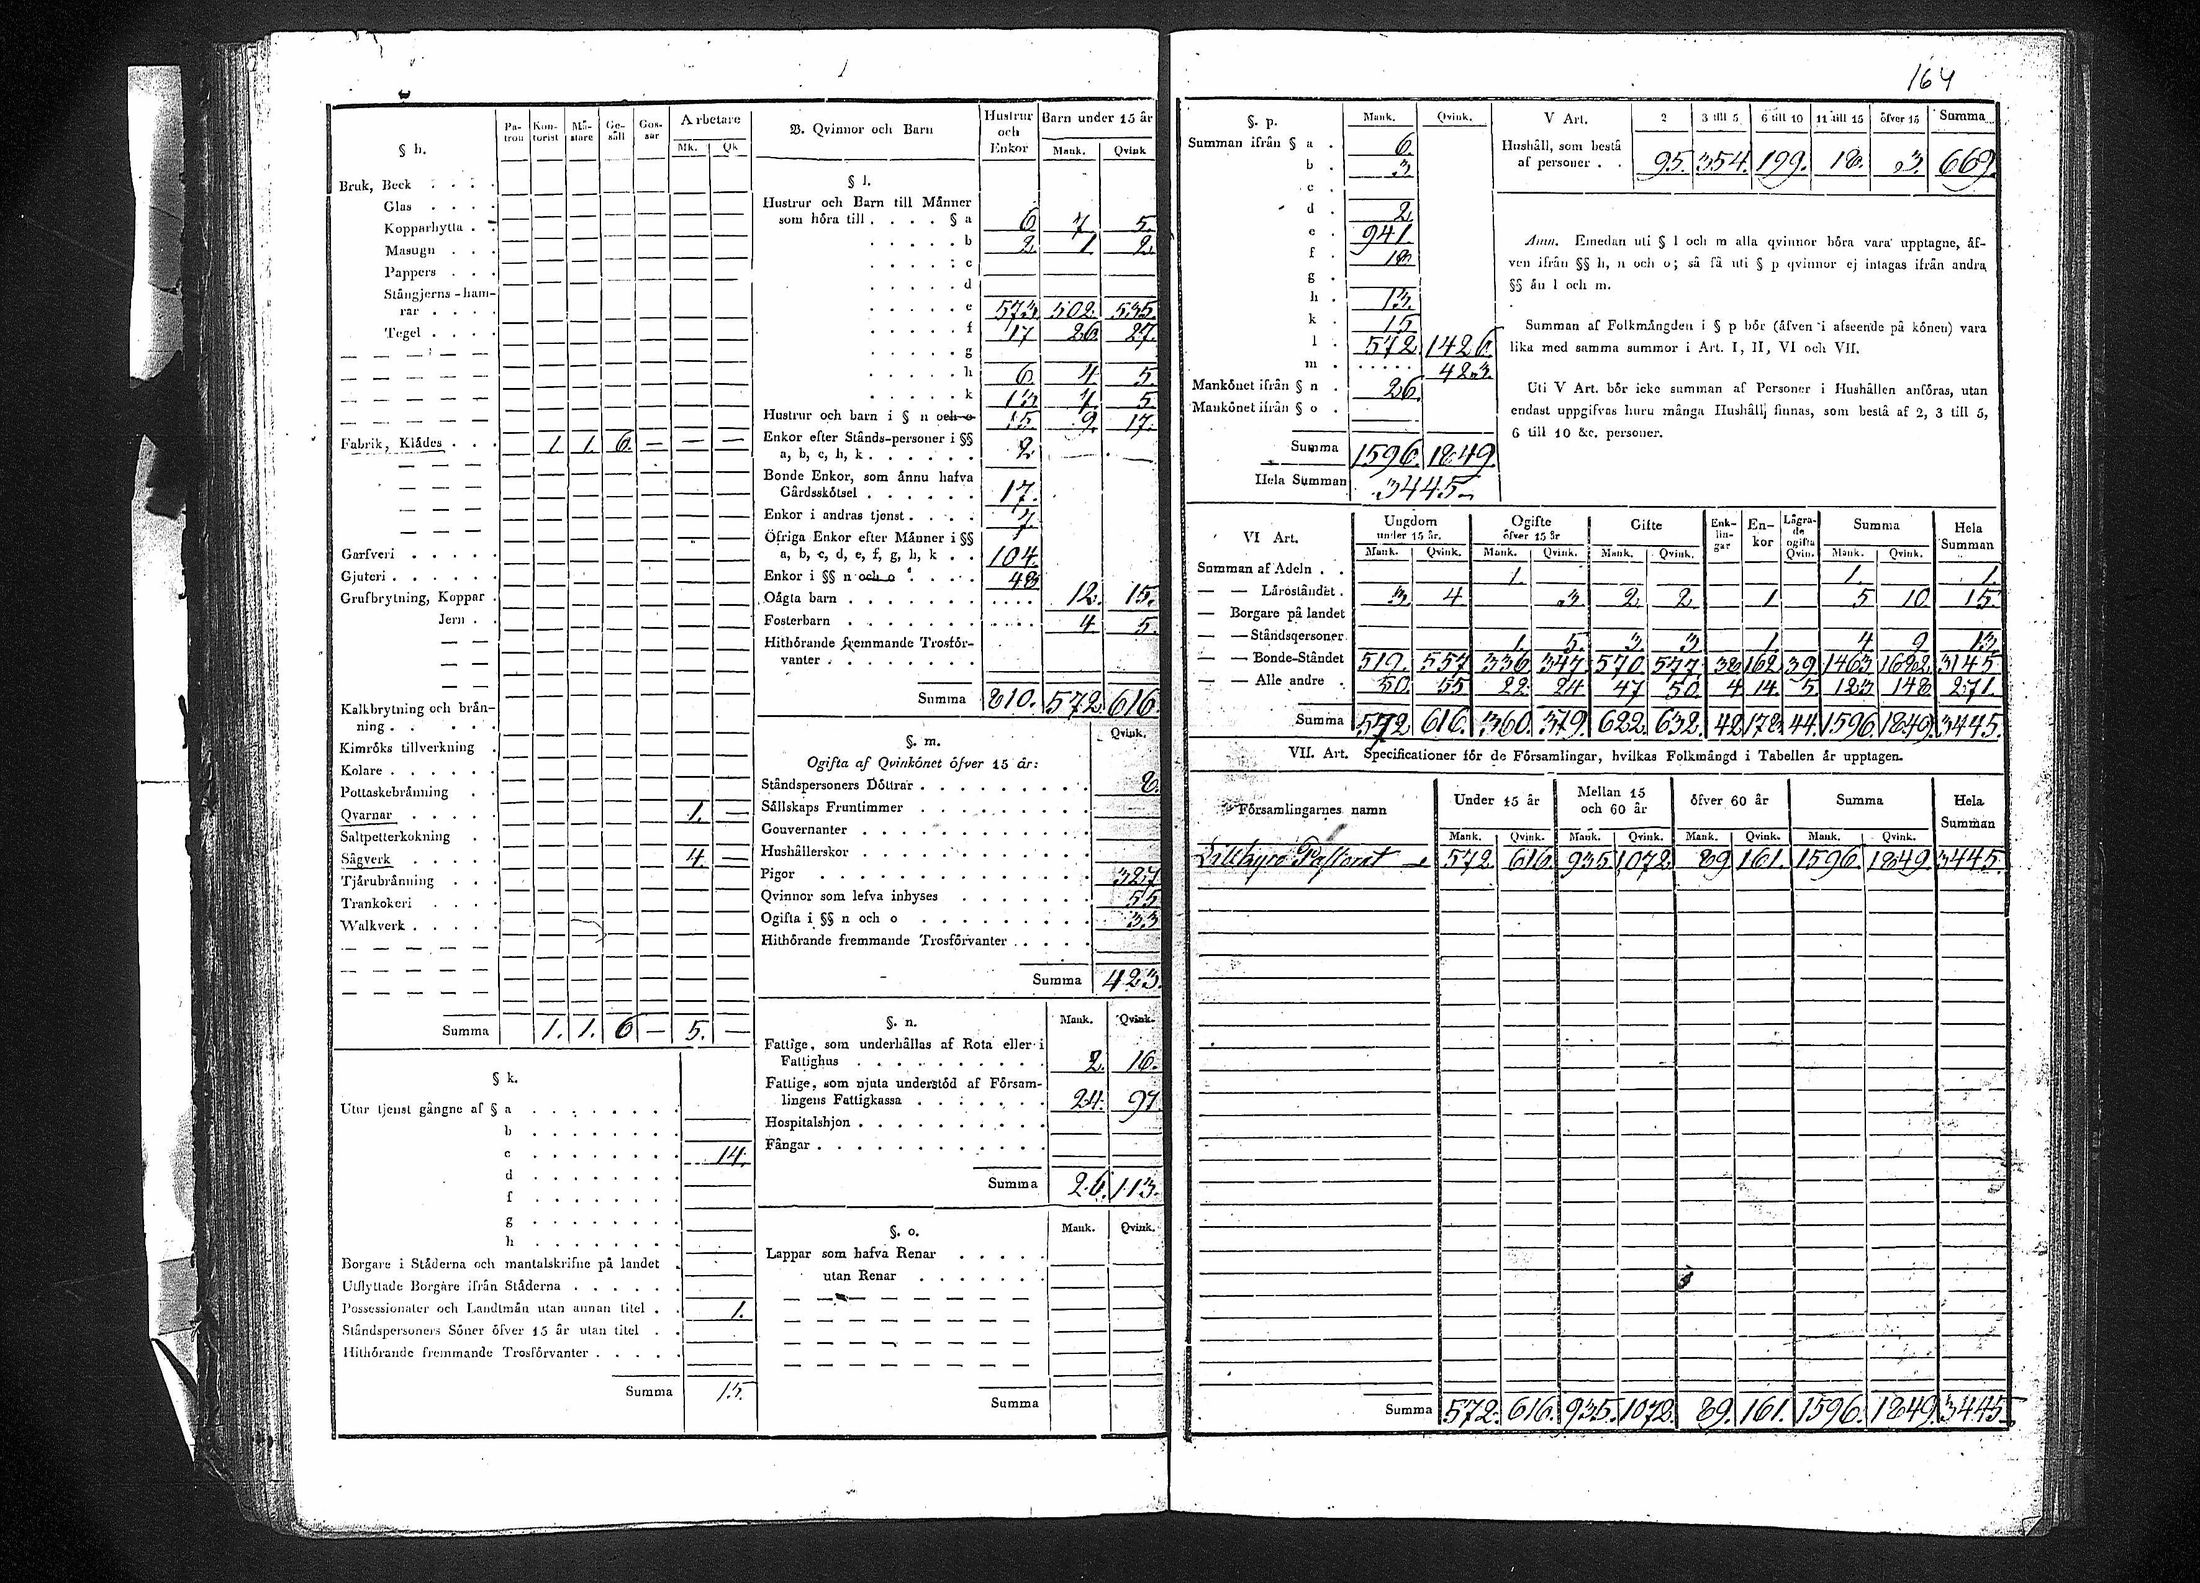 164
§ h.
Patron Kontorist Mästare Gesäll Gossar Arbetare
Mk. Qk
Bruk, Beck . . . .
Glas . . . .
Kopparhytta . .
Masugn . . .
Pappers . . .
Stångjerns-hamrar . . . .
Tegel . . . .
Fabrik, Klädes . . . 1. 1. 6. — — —
Garfveri . . . . .
Gjuteri . . . . . .
Grufbrytning, Koppar .
Jern . .
Kalkbrytning och bränning . . . . .
Kimröks tillverkning .
Kolare . . . . . .
Pottaskebränning . .
Qvarnar . . . . . 1. —
Saltpetterkokning . .
Sågverk . . . . . 4. —
Tjärubränning . . .
Trankokeri . . . .
Walkverk . . . . .
Summa 1. 1. 6 — 5. —
§ k.
Utur tjenst gångne af § a . . . . . . .
b . . . . . . .
c . . . . . . . 14.
d . . . . . . .
f . . . . . . .
g . . . . . . .
h . . . . . . .
Borgare i Städerna och mantalskrifne på landet .
Utflyttade Borgare ifrån Städerna . . . . . .
Possessionater och Landtmän utan annan titel . . 1.
Ståndspersoners Söner öfver 15 år utan titel . .
Hithörande fremmande Trosförvanter . . . . .
Summa 15.
B. Qvinnor och Barn
Hustrur och Enkor Barn under 15 år
Mank. Qvink
§ l.
Hustrur och Barn till Männer
som höra till . . . . § a 6 7 5.
. . . . . b 2. 1. 2.
. . . . : c
. . . . . d
. . . . . e 573 502. 535.
. . . . . f 17 26. 27.
. . . . . g
. . . . . h 6. 4. 5.
. . . . . k 13 7. 5.
Hustrur och barn i § n och o 15. 9. 17.
Enkor efter Stånds-personer i §§
a, b, c, h, k . . . . . . 2.
Bonde Enkor, som ännu hafva
Gårdsskötsel . . . . . . 17.
Enkor i andras tjenst . . . . 7.
Öfriga Enkor efter Männer i §§
a, b, c, d, e, f, g, h, k . . 104.
Enkor i §§ n och o . . . . 48
Oägta barn . . . . . . . . . . . 12. 15.
Fosterbarn . . . . . . . . . . . 4. 5.
Hithörande fremmande Trosförvanter . . . . . . . .
Summa 810. 572. 616.
§. m.
Qvink.
Ogifta af Qvinkönet öfver 15 år:
Ståndspersoners Döttrar . . . . . . . . . . 8.
Sällskaps Fruntimmer . . . . . . . . . .
Gouvernanter . . . . . . . . . . . .
Hushållerskor . . . . . . . . . . . .
Pigor . . . . . . . . . . . . . . 327
Qvinnor som lefva inhyses . . . . . . . 55
Ogifta i §§ n och o . . . . . . . . . 33
Hithörande fremmande Trosförvanter . . . . .
Summa 423.
§. n. Mank. Qvink.
Fattige, som underhållas af Rota eller i
Fattighus . . . . . . . . . 2. 16.
Fattige, som njuta understöd af Församlingens Fattigkassa . . . . . . . 24. 97
Hospitalshjon . . . . . . . . . .
Fångar . . . . . . . . . . . . .
Summa 26. 113.
§. o. Mank. Qvink.
Lappar som hafva Renar . . . . .
utan Renar . . . . . . .
Summa
§. p. Mank. Qvink.
Summan ifrån § a . 6.
b . 3
c .
d . 2.
e . 941.
f . 18.
g .
h . 13.
k . 15
l . 572. 1426.
m . . . . . . 423.
Mankönet ifrån § n . 26.
Mankönet ifrån § o .
Summa 1596. 1849.
Hela Summan 3445.
V Art. 2 3 till 5 6 till 10 11 till 15 öfver 15 Summa
Hushåll, som bestå
af personer . . 95. 354. 199. 18. 3. 669.
Anm. Emedan uti § l och m alla qvinnor böra vara upptagne, äf-
ven ifrån §§ h, n och o; så få uti § p qvinnor ej intagas ifrån andra
§§ än l och m.
Summan af Folkmängden i § p bör (äfven i afseende på könen) vara
lika med samma summor i Art. I, II, VI och VII.
Uti V Art. bör icke summan af Personer i Hushållen anföras, utan
endast uppgifvas huru många Hushåll, finnas, som bestå af 2, 3 till 5,
6 till 10 &c. personer.
VI Art. Ungdom under 15 år. Ogifte öfver 15 år Gifte Enklingar Enkor Lägrade ogifta Qvin. Summa Hela Summan
Mank. Qvink. Mank. Qvink. Mank. Qvink. Mank. Qvink.
Summan af Adeln . . 1. 1. 1.
— — Läroståndet . 3. 4. 3 2. 2. 1 5 10 15.
— Borgare på landet
— — Ståndspersoner 1. 5. 3 3 1. 4 9 13.
— — Bonde-Ståndet 519. 557 336 347 570 577 38 162 39 1463 1682 3145.
— — Alle andre . 50. 55 22. 24 47 50. 4 14. 5 123 148 271.
Summa 572. 616. 360. 379. 622. 632. 42 178. 44. 1596. 1849. 3445.
VII. Art. Specificationer för de Församlingar, hvilkas Folkmängd i Tabellen är upptagen.
Församlingarnes namn Under 15 år Mellan 15 och 60 år öfver 60 år Summa Hela Summan
Mank. Qvink. Mank. Qvink. Mank. Qvink. Mank. Qvink.
Lillkyro Pastorat 572. 616. 935. 1072. 89. 161. 1596. 1849. 3445.
Summa 572. 616. 935. 1072. 89. 161. 1596. 1849. 3445.